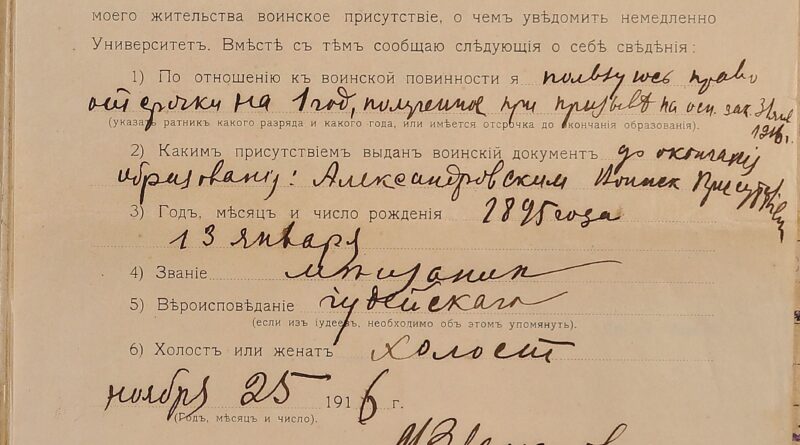 моего жительства воинское присутствіе, о чемъ увѣдомить немедленно
Университетъ. Вмѣстѣ съ тѣмъ сообщаю слѣдующія о себѣ свѣдѣнія:
1) По отношенію къ воинской повинности я пользуюсь право
отсрочки на 1 год, полученное при призывѣ на осн. зак.
1916 г.
(указать ратникъ какого разряда и какого года, или имѣется отсрочка до окончанія образованія).
2) Какимъ присутствіемъ выданъ воинскій документъ до окончанія
образованія: Александровским Воинск Присутствіем
3) Годъ, мѣсяцъ и число рожденія 1895 года
13 января
4) Званіе мѣщанин
5) Вѣроисповѣданіе іудейскаго
(если изъ іудеевъ, необходимо объ этомъ упомянуть).
6) Холостъ или женатъ холост
ноября 25 1916 г.
(Годъ, мѣсяцъ и число).